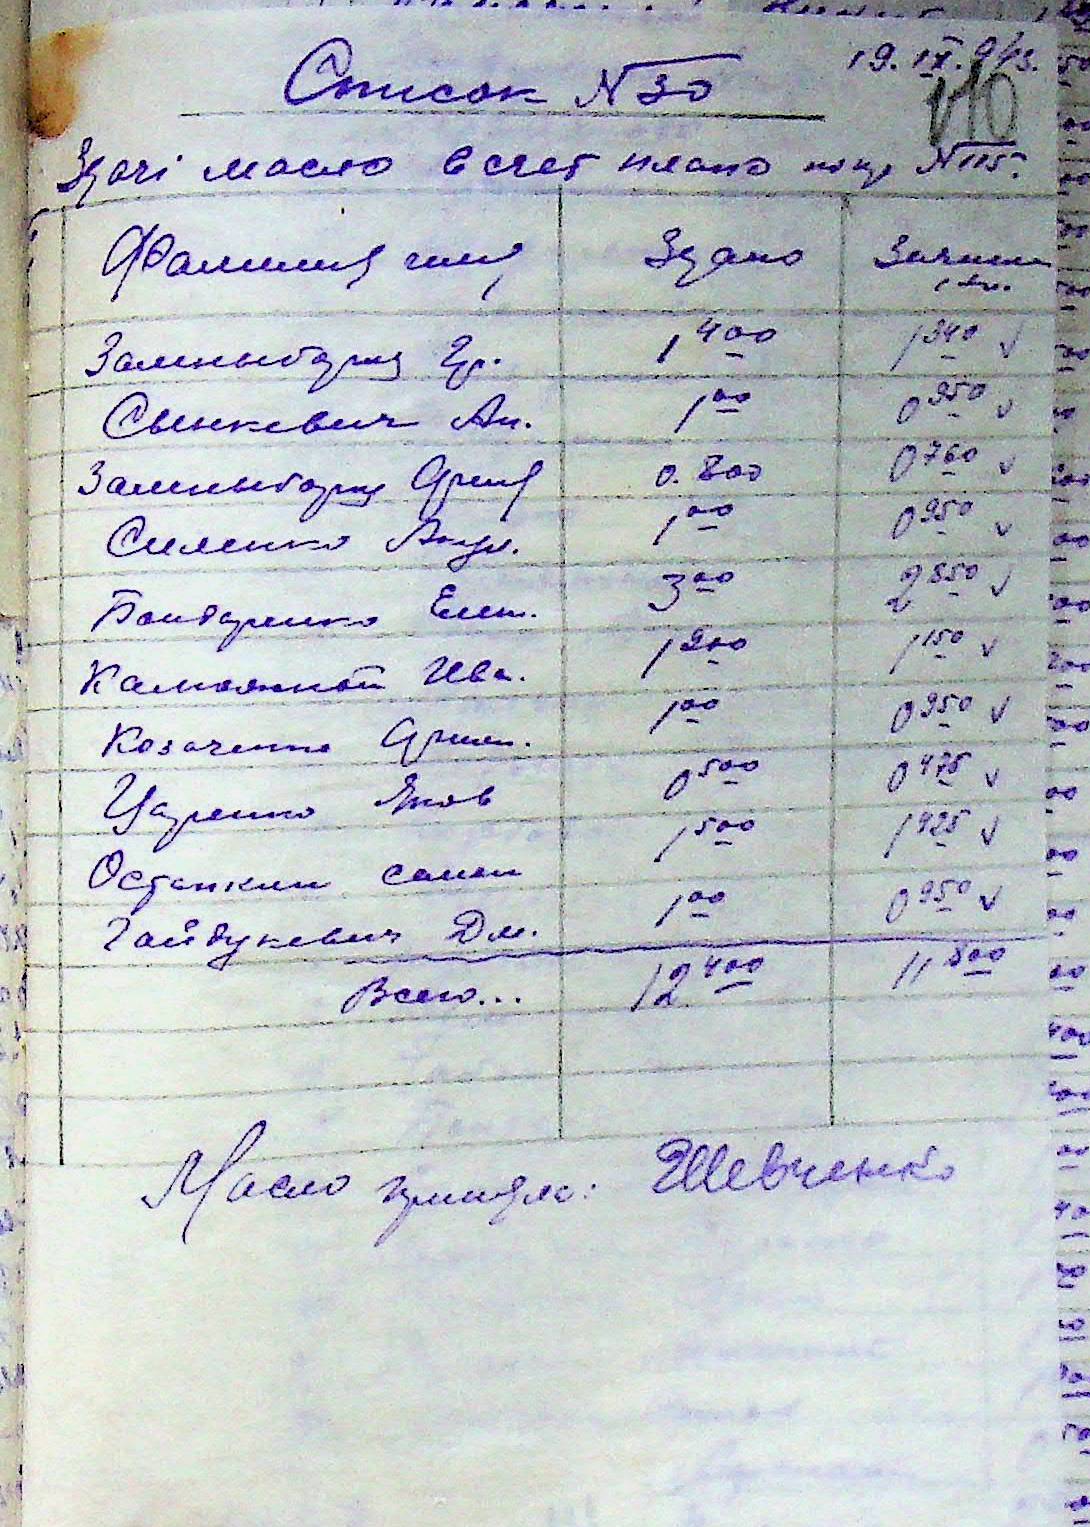 19. IX. 943.
Список №30
110
Здачі масло в счет плано по №115.
Фамилия имя Здано Зачит
Замныборщ Гр. 1 400 1 340 √
Сынкевич Ан. 1 00 0 950 √
Замныборщ 0.800 0 760 √
Силенко Акул. 1 00 0 950 √
Бондаренко Елен. 3 00 2 850 √
Каможной Ива. 1 200 1 150 √
Козаченко 1 00 0 950 √
Цуренко Яков 0 500 0 475 √
Останкин семен 1 500 1 425 √
Гайдукевич Дм. 1 00 0 950 √
Всего... 12 400 11 800
Масло приняла: Шевченко